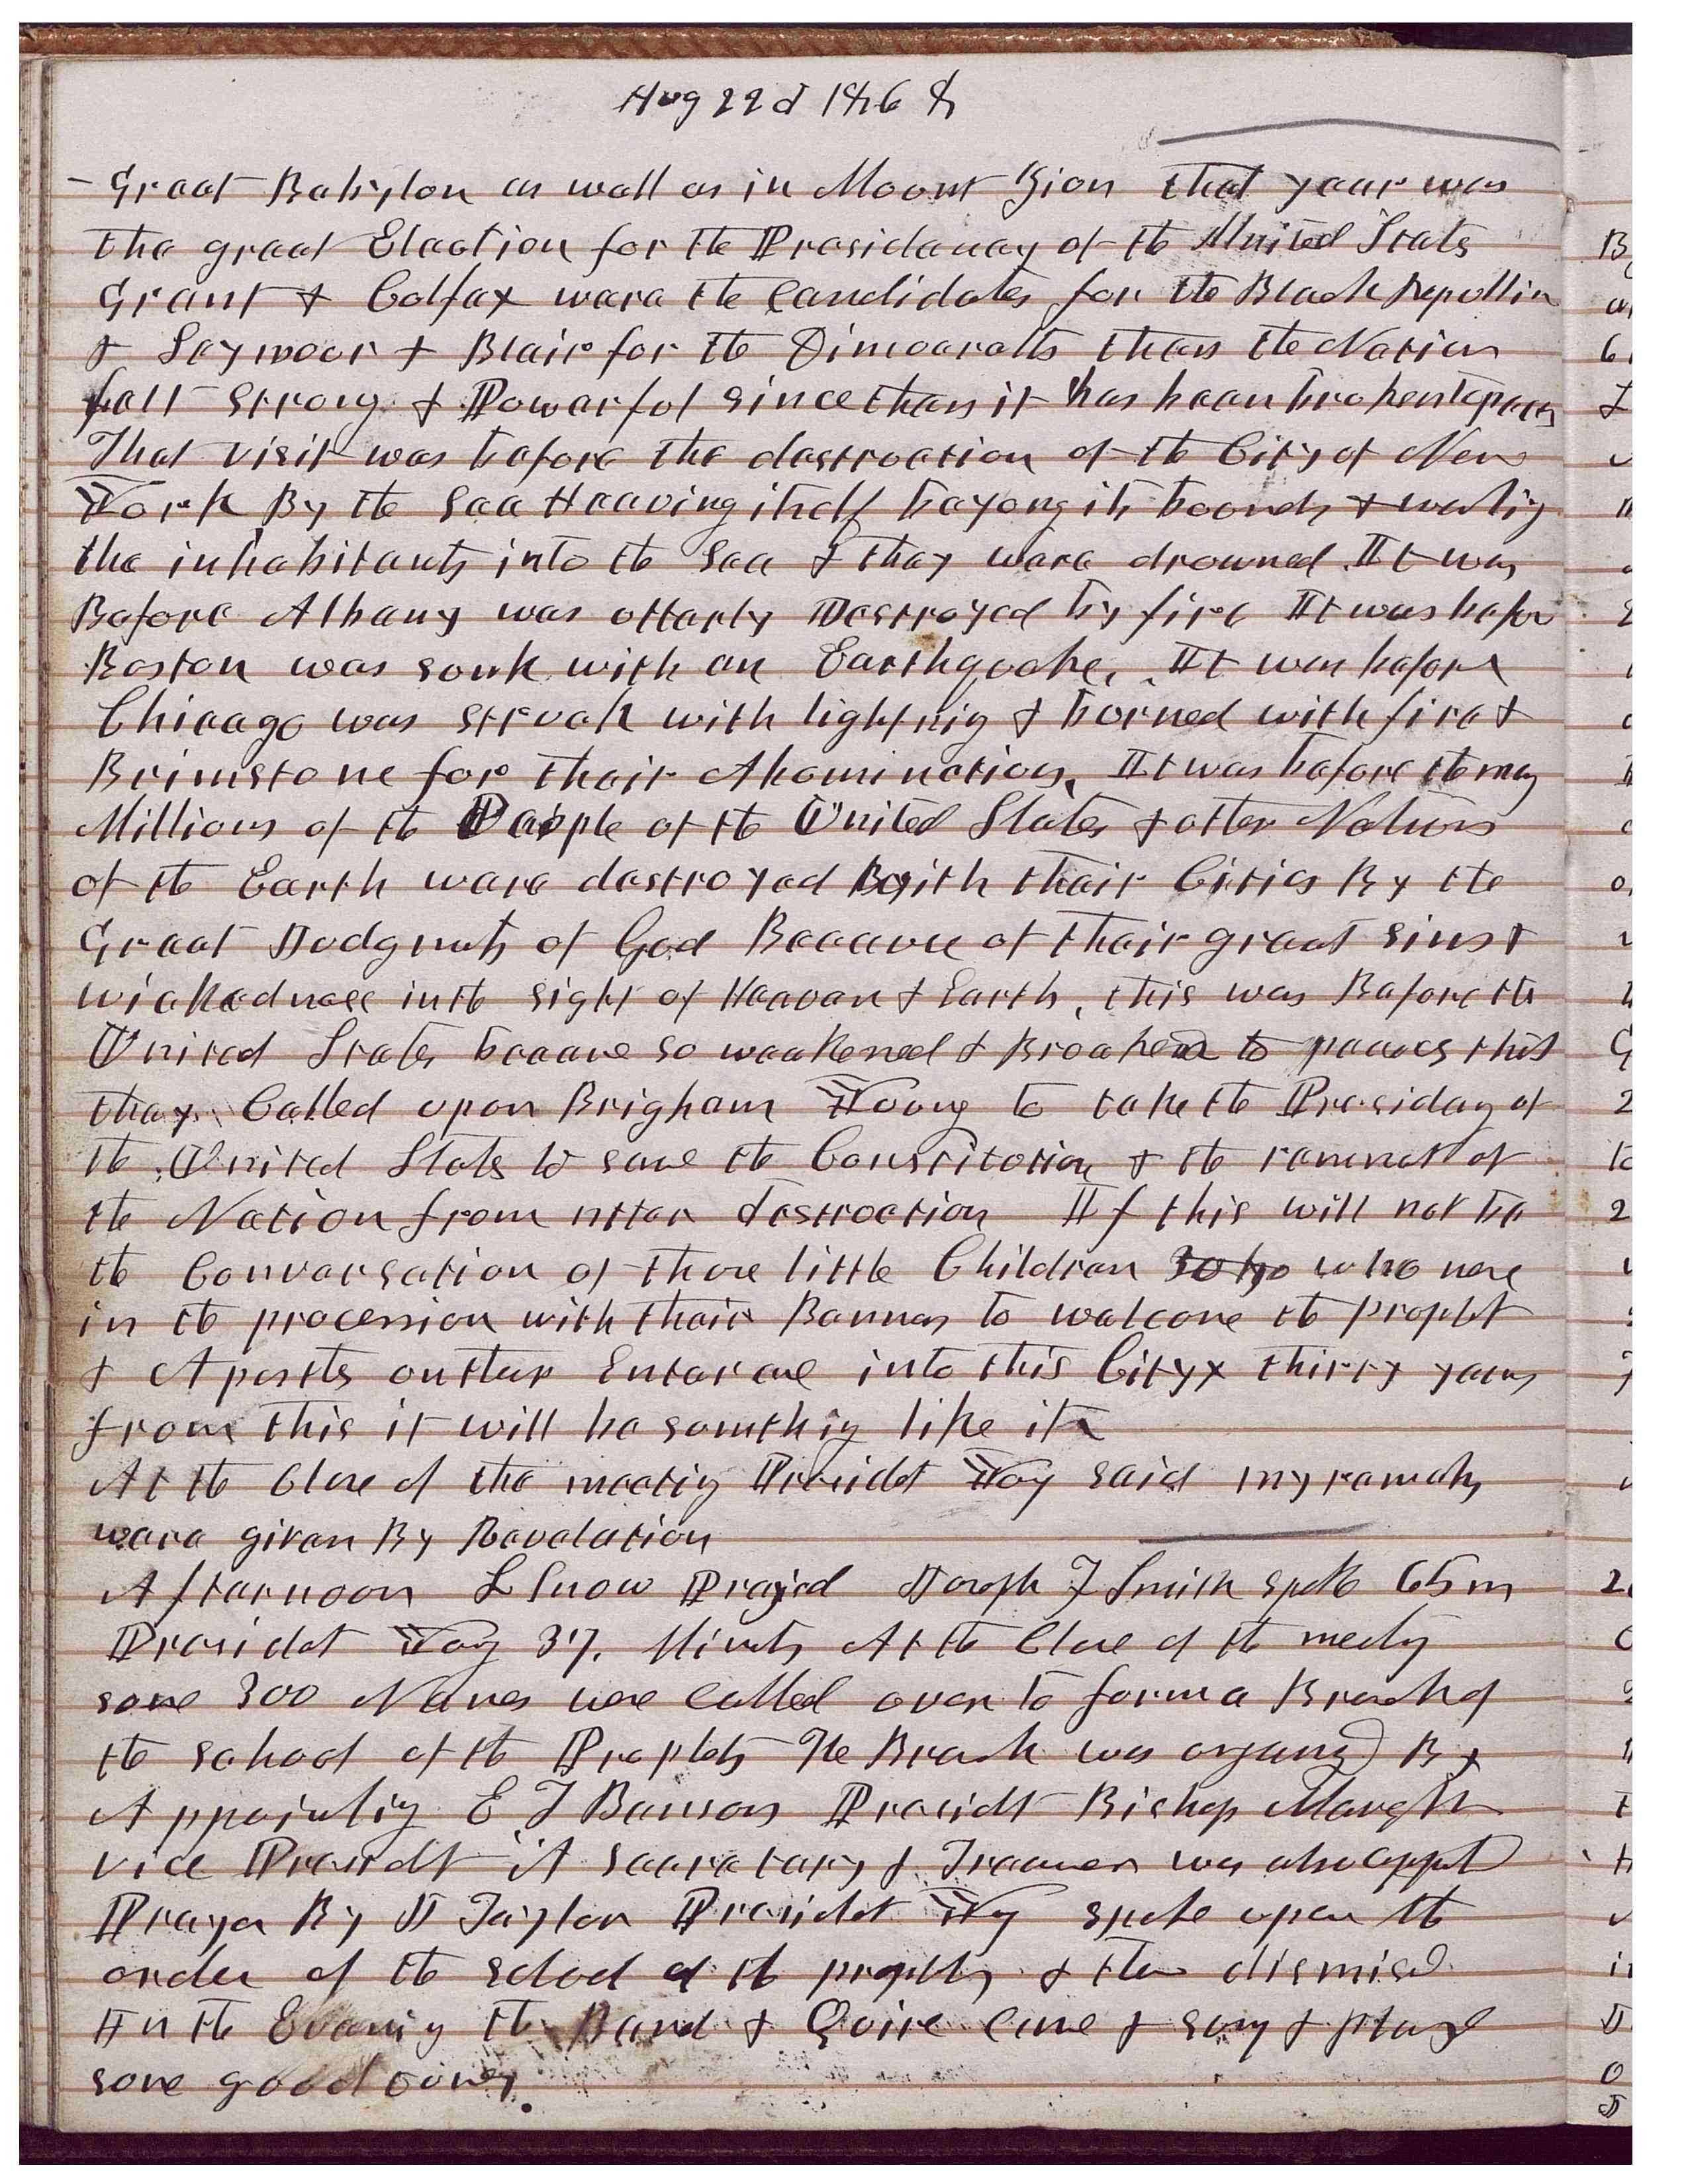 Aug 22d 1868
Great Babylon as well as in Mount Zion that year was
the great Election for the Presidency of the United States
Grant & Colfax were the candidates for the Black Republin
& Seymoor & Blair for the Dimocratts then the Nation
felt strong & Powerful since then it has been broken to peces
That visit was before the destruction of the City of New
York By the Sea Heaving itself beyong its bounds & washig
the inhabitants into the Sea & they were drowned It was
Before Albany was utterly Destroyed by fire It was befor
Boston was sunk with an Earthquake, It was before
Chicago was struck with lightnig & burned with fire &
Brimstone for their Abominations, It was before the many
Millions of the People of the United States & other Nations
of the Earth were destroyed with their Cities By the
Great Judgmts of God Because of their great sins &
wickedness in the sight of Heaven & Earth, this was Before the
United States became so weakened & Broaken to peaces that
they Called upon Brigham Young to take the Presidey of
the United States to save the Constitution & the remnat of
the Nation from utter destruction If this will not be
the Conversation of those little Children who were
in the procession with their Banners to welcome the prophet
& Apostls on ther Enterence into this City thirty years
from this it will be somthig like it
At the Close of the meetig Presidet Yog said my remaks
were given By Revelation
Afternoon L Snow Prayed Joseph F Smith spoke 65 m
Presidet Yog 37. Minuts At the Close of the meetig
some 300 Names were called over to form a Branch of
the school of the Prophets The Branch was organized By
Appointig E T Benson Presidt Bishop Maughn
vice Presidt A Secretary & Treasurer was also appted
Prayer By J Taylor Presidet Yg spoke upon the
order of the school of the prophets & then dismised
In the Evenig the Band & Quire came & sung & played
some good tunes.